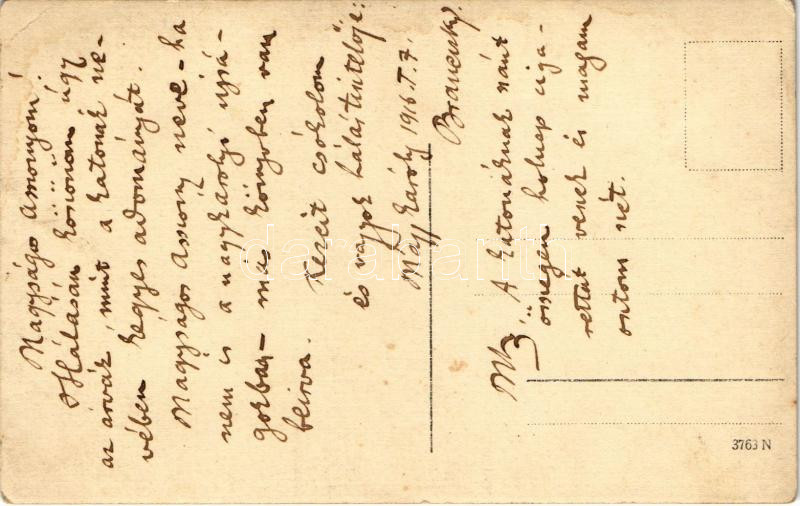 Nagyságos Asszonyom!
Hálásan köszönöm úgy
az árvák, mint a katonák ne-
vében kegyes adományát.
Nagyságos Asszony neve – ha
nem is a nagykárolyi ujsá-
gokban – más könyvben van
beirva.
Kezeit csókolom
és vagyok hálás tisztelője:
Nagy Károly 1916. I. 7.
A katonáknak szánt
összegen holnap ciga-
rettát veszek és magam
osztom szét.
3763 N
darabanth